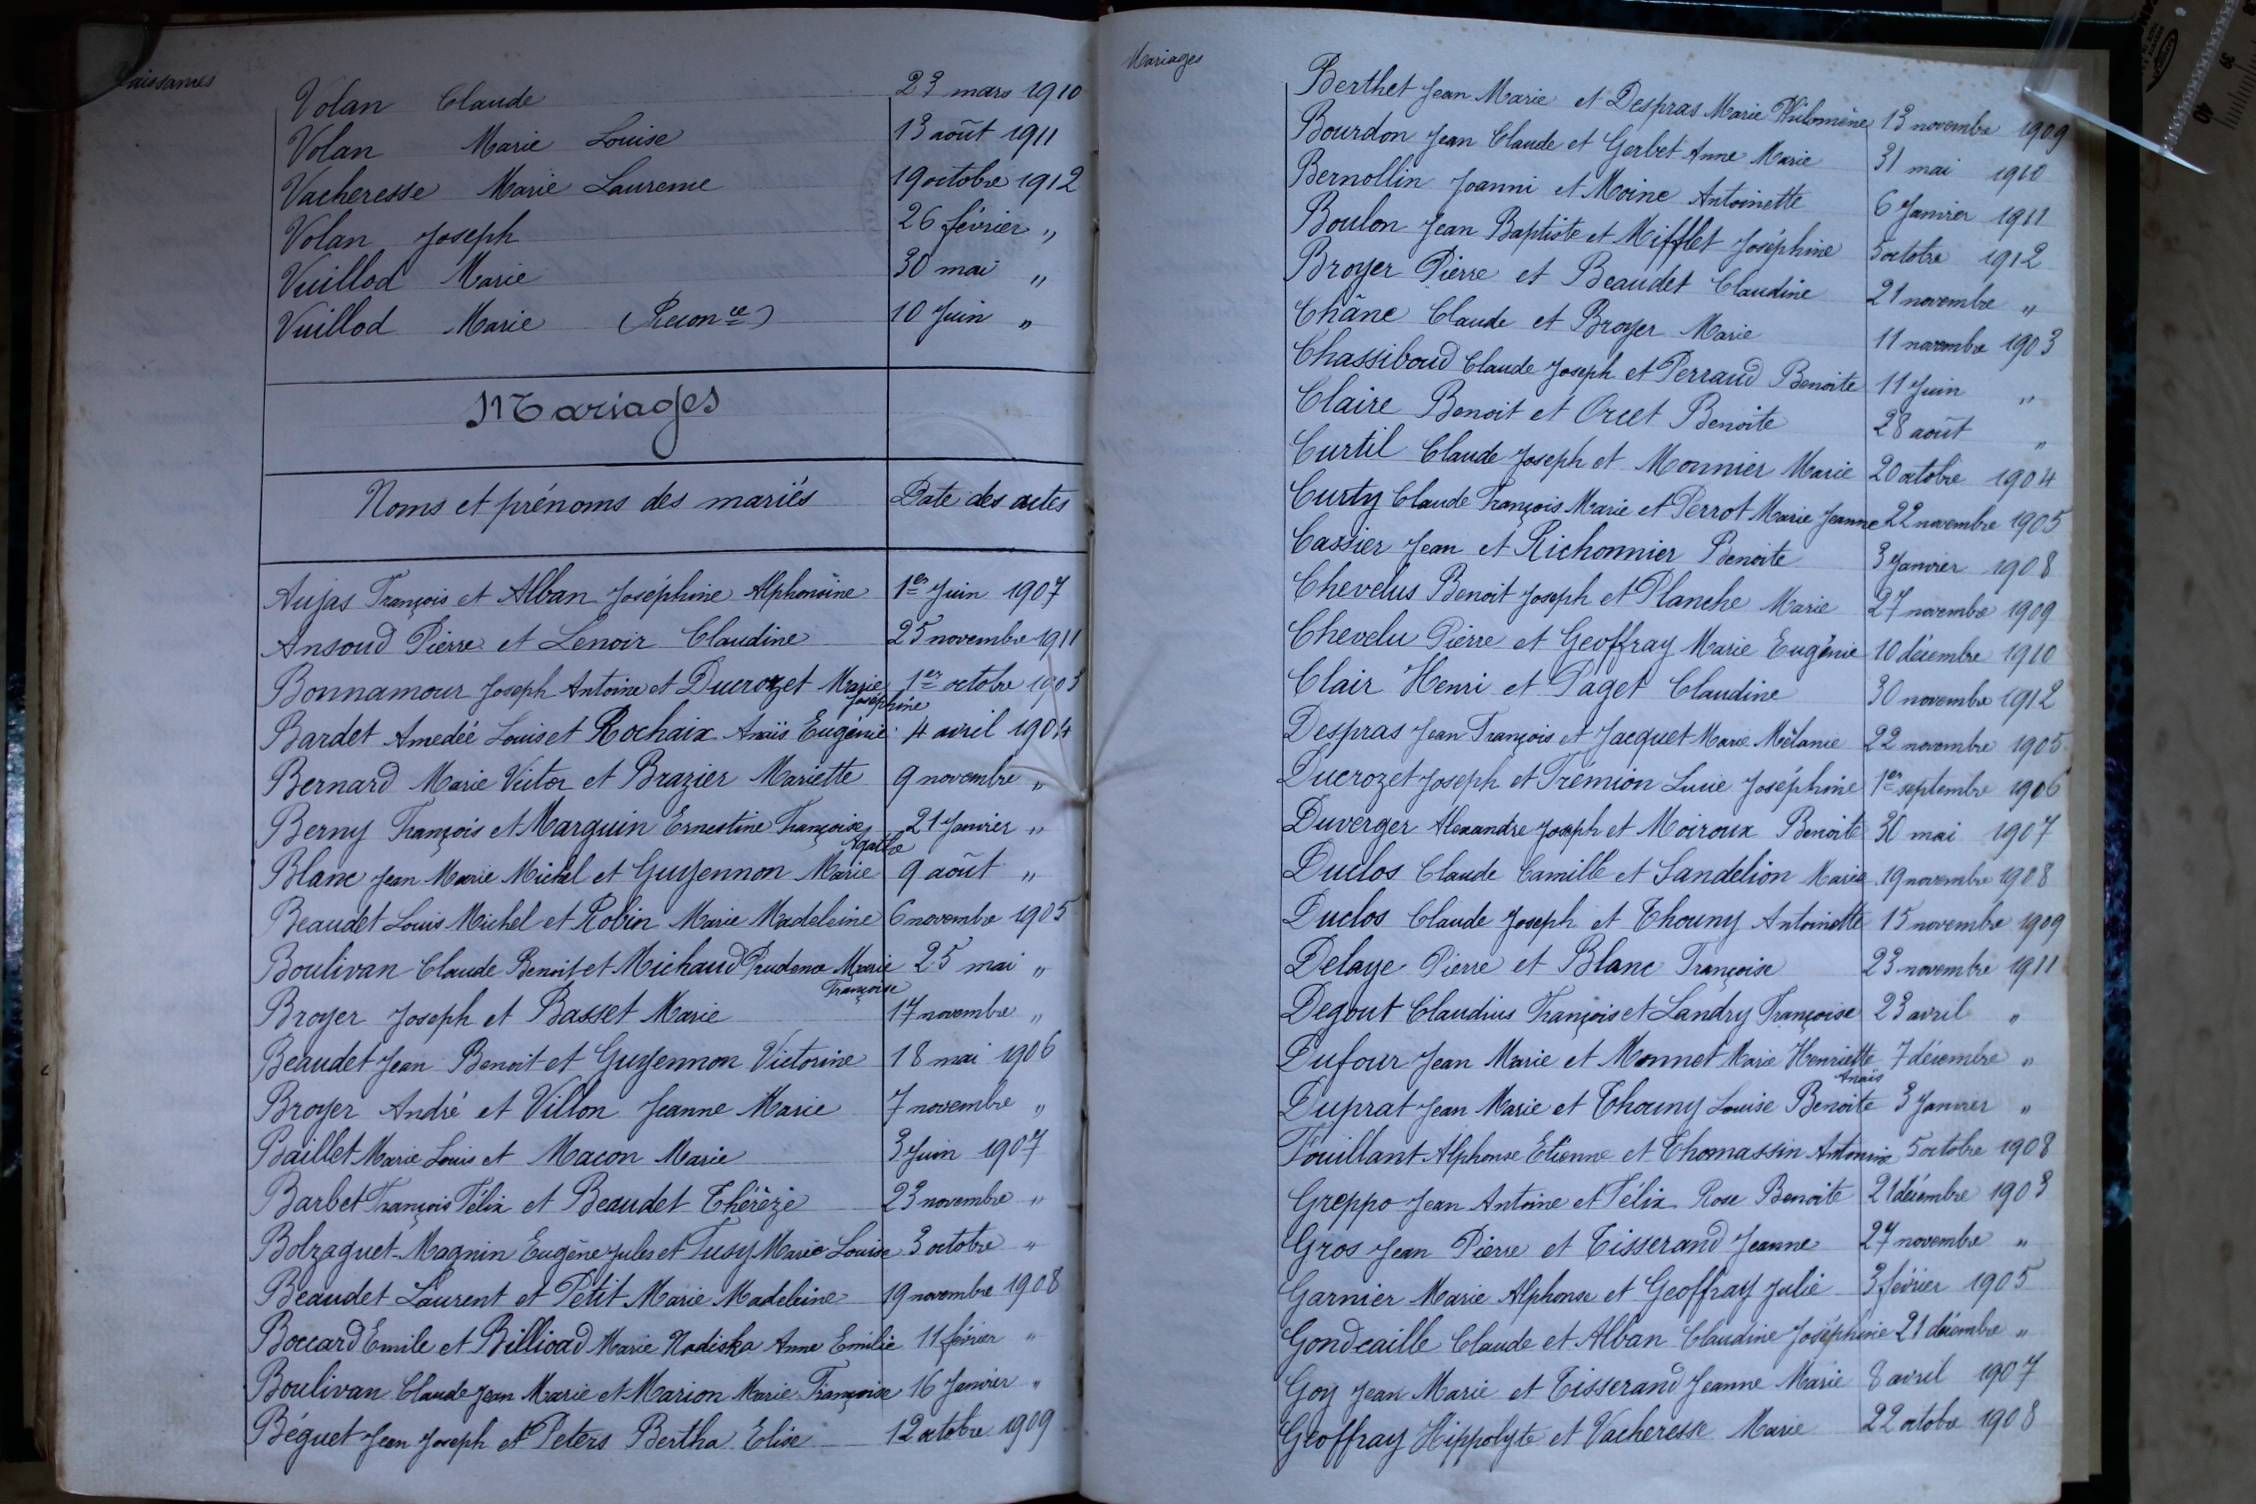 Naissances
Volan Claude 23 mars 1910
Volan Marie Louise 13 août 1911
Vacheresse Marie Laurence 19 octobre 1912
Volan Joseph 26 février "
Vuillod Marie 30 mai "
Vuillod Marie (Reconce) 10 Juin "
Mariages
Noms et prénoms des mariés Date des actes
Aujas François et Alban Joséphine Alphonsine 1er Juin 1907
Ansoud Pierre et Lenoir Claudine 25 novembre 1911
Bonnamour Joseph Antoine et Ducrozet Marie 1er octobre 1903
Joséphine
Bardet Amedée Louis et Rochaix Anaïs Eugénie 4 avril 1904
Bernard Marie Victor et Brazier Mariette 9 novembre "
Berny François et Marguin Ernestine Françoise 21 Janvier "
Agathe
Blanc Jean Marie Michel et Guyennon Marie 9 août "
Beaudet Louis Michel et Robin Marie Madeleine 6 novembre 1905
Boulivan Claude Benoit et Michaud Prudence Marie 25 mai "
Françoise
Broyer Joseph et Basset Marie 17 novembre "
Beaudet Jean Benoit et Guyennon Victorine 18 mai 1906
Broyer André et Villon Jeanne Marie 7 novembre "
Baillet Marie Louis et Macon Marie 3 Juin 1907
Barbet François Félix et Beaudet Thérèze 23 novembre "
Bolzaguet-Magnin Eugène Jules et Tusy Marie Louise 3 octobre "
Beaudet Laurent et Petit Marie Madeleine 19 novembre 1908
Boccard Emile et Billioad Marie Nadiska Anne Emilie 11 février "
Boulivan Claude Jean Marie et Marion Marie Françoise 16 Janvier "
Béguet Jean Joseph et Peters Bertha Elise 12 octobre 1909
Mariages
Berthet Jean Marie et Despras Marie Philomène 13 novembre 1909
Bourdon Jean Claude et Gerbet Anne Marie 31 mai 1910
Bernollin Joanni et Moine Antoinette 6 Janvier 1911
Boulon Jean Baptiste et Mifflet Joséphine 5 octobre 1912
Broyer Pierre et Beaudet Claudine 21 novembre "
Châne Claude et Broyer Marie 11 novembre 1903
Chassiboud Claude Joseph et Perraud Benoite 11 Juin "
Claire Benoit et Orcet Benoite 28 août "
Curtil Claude Joseph et Monnier Marie 20 octobre 1904
Curty Claude François Marie et Perrot Marie Jeanne 22 novembre 1905
Cassier Jean et Richonnier Benoite 3 Janvier 1908
Chevelus Benoit Joseph et Planche Marie 27 novembre 1909
Chevelu Pierre et Geoffray Marie Eugénie 10 décembre 1910
Clair Henri et Paget Claudine 30 novembre 1912
Despras Jean François et Jacquet Marie Mélanie 22 novembre 1905
Ducrozet Joseph et Trémion Lucie Joséphine 1er septembre 1906
Duverger Alexandre Joseph et Moiroux Benoite 30 mai 1907
Duclos Claude Camille et Sandelion Marie 19 novembre 1908
Duclos Claude Joseph et Thouny Antoinette 15 novembre 1909
Delaye Pierre et Blanc Françoise 23 novembre 1911
Degout Claudius François et Landry Françoise 23 avril "
Dufour Jean Marie et Monnet Marie Henriette 7 décembre "
Anaïs
Duprat Jean Marie et Thouny Louise Benoite 3 Janvier "
Fouillant Alphonse Etienne et Thomassin Antonine 5 octobre 1908
Greppo Jean Antoine et Félix Rose Benoite 21 décembre 1903
Gros Jean Pierre et Tisserand Jeanne 27 novembre "
Garnier Marie Alphonse et Geoffray Julie 3 février 1905
Gondcaille Claude et Alban Claudine Joséphine 21 décembre "
Goy Jean Marie et Tisserand Jeanne Marie 8 avril 1907
Geoffray Hippolyte et Vacheresse Marie 22 octobre 1908